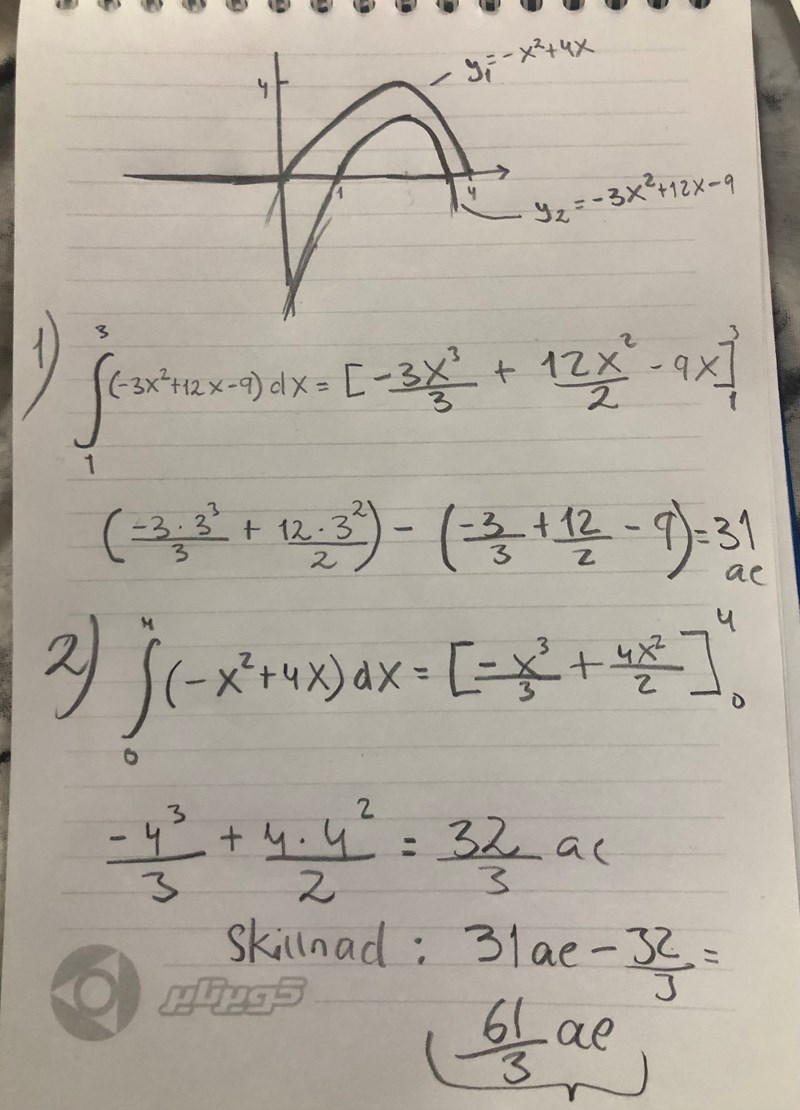 4
y₁=-x²+4x
1
4
y₂=-3x²+12x-9
1) ∫₁³(-3x²+12x-9)dx = [-3x³/3 + 12x²/2 - 9x]₁³
(-3·3³/3 + 12·3²/2) - (-3/3 + 12/2 - 9) = 31
ae
2) ∫₀⁴(-x²+4x)dx = [-x³/3 + 4x²/2]₀⁴
-4³/3 + 4·4²/2 = 32/3 ae
Skillnad: 31ae - 32/3 =
61/3 ae
کویرتایر